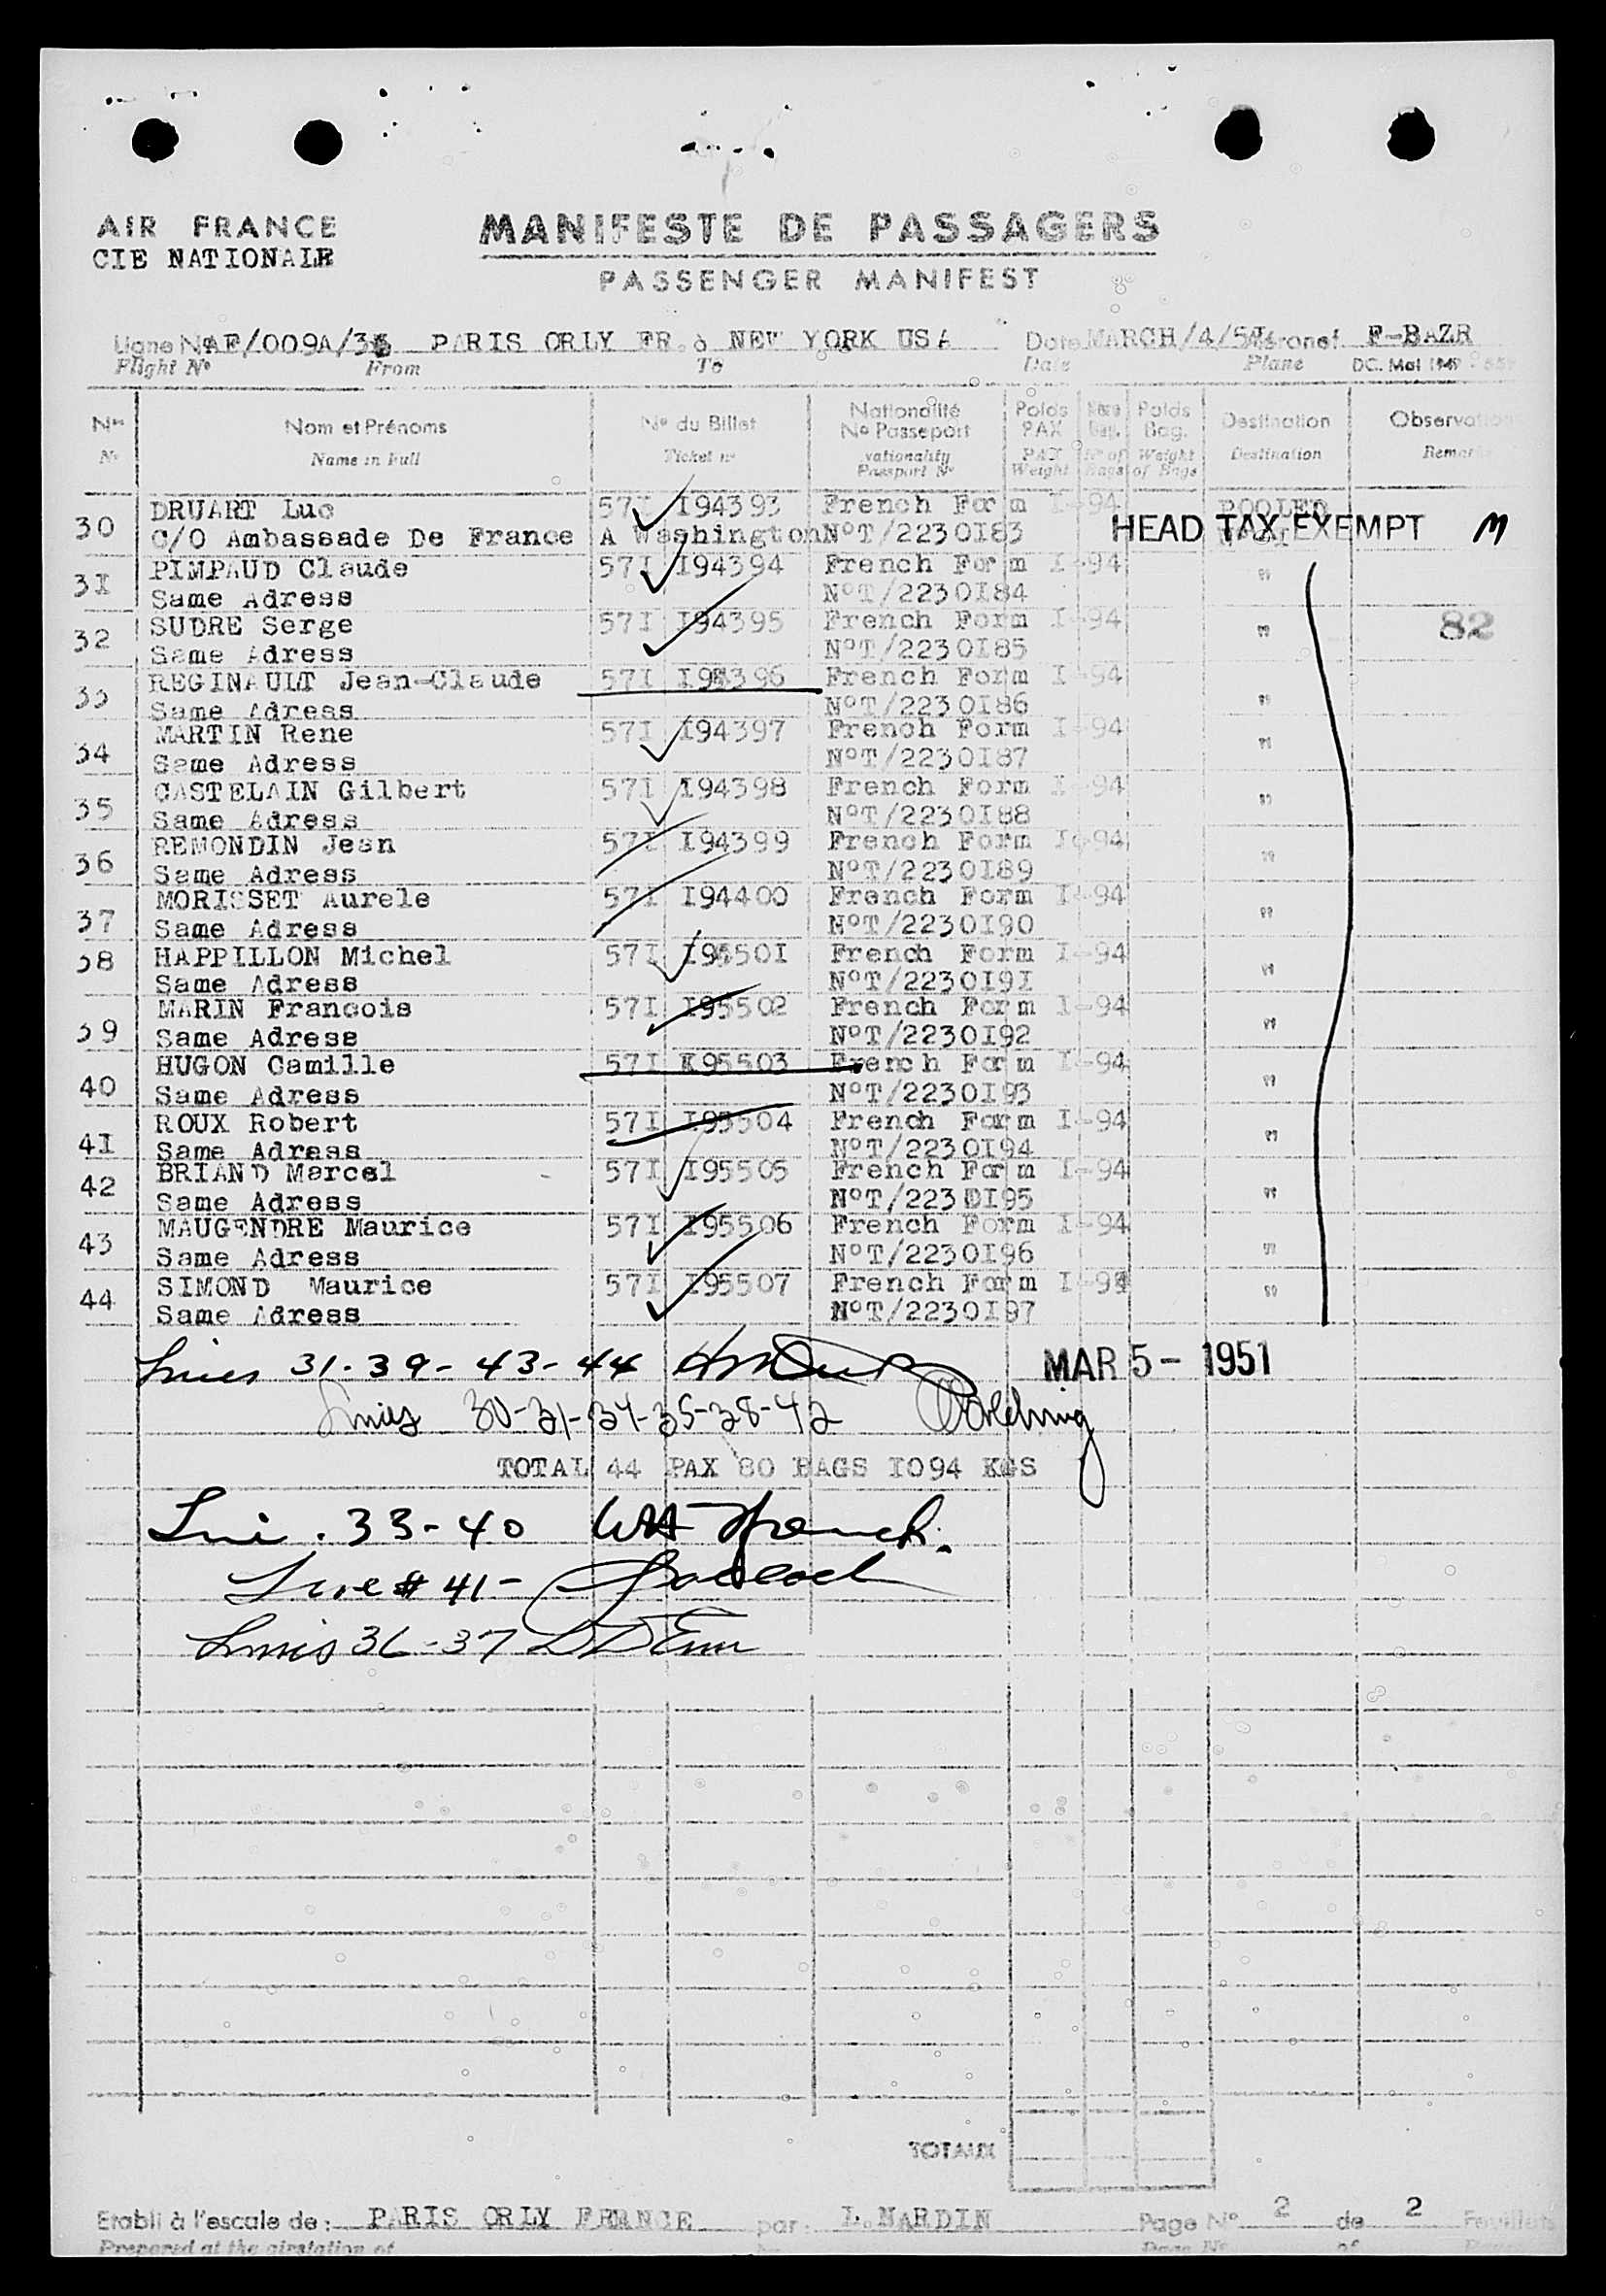 AIR FRANCE
CIE NATIONAIR
MANIFESTE DE PASSAGERS
PASSENGER MANIFEST
Ligne No AF/009A/ PARIS ORLY FR. à NEW YORK USA Date MARCH/4/51 Aéronef F-BAZR
Flight No From To Date Plane DC. Mai 1949
Nos Nom et Prénoms No du Billet Nationalité No Passeport Poids PAX Nbre Bag. Poids Bag. Destination Observation
No Name in Full Ticket no Nationality Passport No PAX Weight No of Bags Weight of Bags Destination Remarks
30 DRUART Luc 57I I94393 French Form I-94 POOLED
C/O Ambassade De France A Washington NoT/2230I83 HEAD TAX EXEMPT M
3I PIMPAUD Claude 57I I94394 French Form I-94 "
Same Adress NoT/2230I84
32 SUDRE Serge 57I I94395 French Form I-94 " 82
Same Adress NoT/2230I85
33 REGINAULT Jean-Claude 57I I94396 French Form I-94
Same Adress NoT/2230I86 "
34 MARTIN Rene 57I I94397 French Form I-94 "
Same Adress NoT/2230I87
35 CASTELAIN Gilbert 57I I94398 French Form I-94 "
Same Adress NoT/2230I88
36 REMONDIN Jean 57I I94399 French Form I-94 "
Same Adress NoT/2230I89
37 MORISSET Aurele 57I I94400 French Form I-94 "
Same Adress NoT/2230I90
38 HAPPILLON Michel 57I I95501 French Form I-94 "
Same Adress NoT/2230I9I
39 MARIN Francois 57I I95502 French Form I-94 "
Same Adress NoT/2230I92
40 HUGON Camille 57I I95503 French Form I-94 "
Same Adress NoT/2230I93
4I ROUX Robert 57I I95504 French Form I-94 "
Same Adress NoT/2230I94
42 BRIAND Marcel 57I I95505 French Form I-94 "
Same Adress NoT/2230I95
43 MAUGENDRE Maurice 57I I95506 French Form I-94 "
Same Adress NoT/2230I96
44 SIMOND Maurice 57I I95507 French Form I-94 "
Same Adress NoT/2230I97
Lines 31-39-43-44 MAR 5- 1951
Lines 30-31-34-35-38-42
TOTAL 44 PAX 80 BAGS I094 KGS
Line. 33-40
Line # 41-
Lines 36-37
TOTAUX
Etabli à l'escale de: PARIS ORLY FRANCE par: L. NARDIN Page No 2 de 2 Feuillets
Prepared at the airstation of Page No of